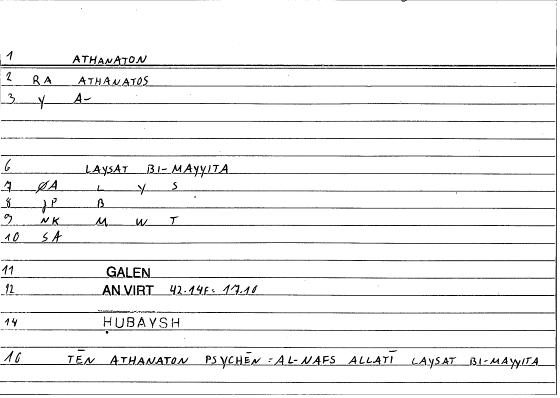 1 ATHANATON
2 RA ATHANATOS
3 y A-
6 LAYSAT BI-MAYYITA
7 ØA L Y S
8 JP B
9 NK M W T
10 SA
11 GALEN
12 AN VIRT 42.14F: 17.10
14 HUBAYSH
16 TĒN ATHANATON PSYCHĒN = AL-NAFS ALLATĪ LAYSAT BI-MAYYITA